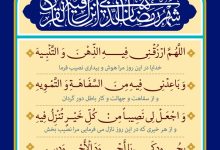 شهر رمضان الذی انزل فیه القرآن
اللهُمَّ ارْزُقْنی فیـهِ الذِّهنَ وَ التَّنْبیهَ
خدایا در این روز مرا هوش و بیداری نصیب فرما
وَ باعِدْنی فیهِ مِنَ السَّفاهَةِ وَ التَّمْویهِ
و از سفاهت و جهالت و کار باطل دور گردان
وَ اجْعَل لی نَصیباً مِن کُلِّ خَیْرٍ تُنْزِلُ فیهِ
و از هر خیری که در این روز نازل می فرمایی مرا نصیب بخش